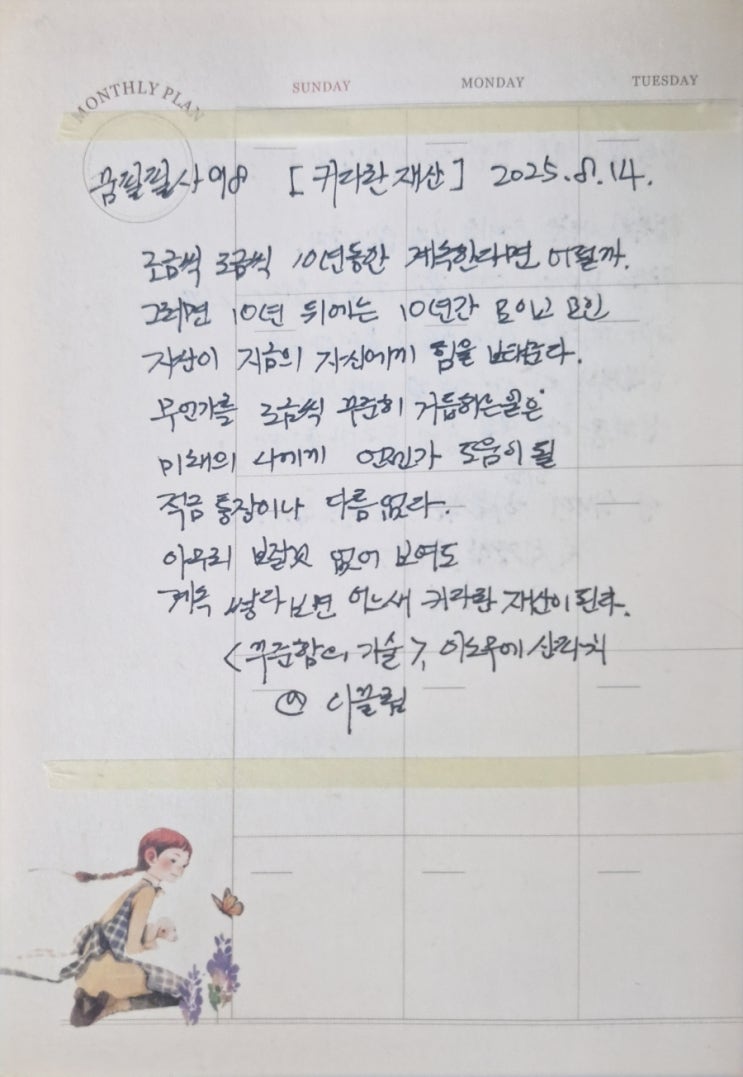 MONTHLY PLAN
SUNDAY MONDAY TUESDAY
꿈필필사 98 [커다란 재산] 2025.8.14.
조금씩 조금씩 10년동안 계속한다면 어떨까.
그러면 10년 뒤에는 10년간 모이고 모인
자산이 지금의 자신에게 힘을 보태준다.
무언가를 조금씩 꾸준히 거듭하는 일은
미래의 나에게 언젠가 도움이 될
적금 통장이나 다름 없다.
아무리 보잘것 없어 보여도
계속 쌓다보면 어느새 커다란 재산이 된다.
<꾸준함의 기술>, 이노우에 신파치
이끌림